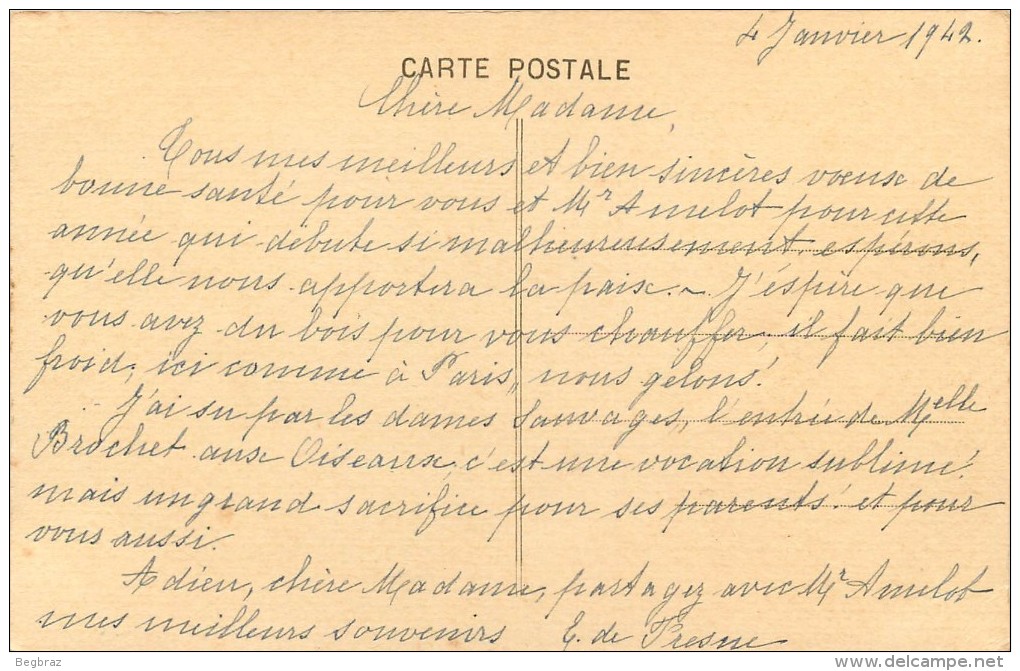 4 Janvier 1942.
CARTE POSTALE
Chère Madame,
Tous mes meilleurs et bien sincères voeux de
bonne santé pour vous et Mr Amelot pour cette
année qui débute si malheureusement, espérons,
qu'elle nous apportera la paix. ~ J'éspère que
vous avez du bois pour vous chauffer, il fait bien
froid, ici comme à Paris, nous gelons!
J'ai su par les dames Sauvages, l'entrée de Melle
Brochet aux Oiseaux, c'est une vocation sublime!
mais un grand sacrifice pour ses parents! et pour
vous aussi.
Adieu, chère Madame, partagez avec Mr Amelot
mes meilleurs souvenirs E. de Fresne
Begbraz
www.delcampe.net